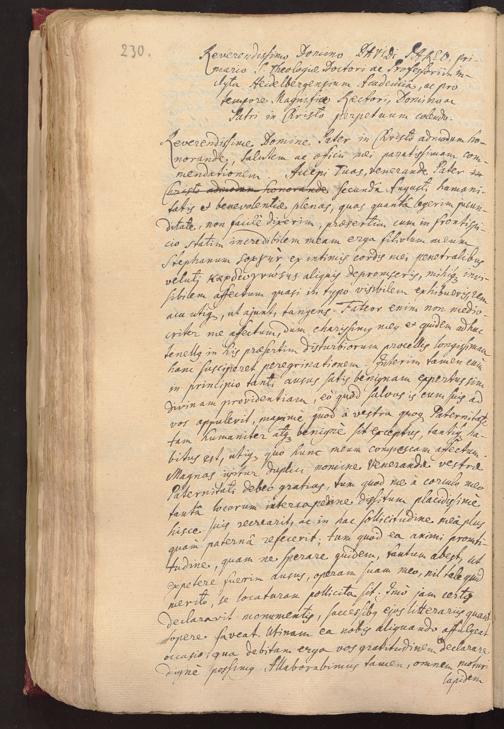 230.
Reverendissimo Domino DAVIDI PAREO, pri-
mario S. Theologiæ Doctori ac Professori in-
clyta Heidelbergensium Academia, ac pro
tempore Magnifico Rectori, Domino ac
Patri in Christo perpetuum colendo.
Reverendissime Domine, Pater in Christo admodum ho-
norande, salutem ac officii mei paratissimam com-
mendationem. Accepi Tuas, venerande Pater in
Christo admodum honorande secunda Augusti, humani-
tatis et benevolentiæ plenas, quas quanta legerim jucun-
ditate, non facile dixerim, præsertim cum in frontispi-
cio statim incredibilem meam erga filiolum meum
Stephanum ex intimis cordis mei penetralibus
veluti aliquis depromseris, mihique invi-
sibilem affectum quasi in typo visibilem exhibueris, rem
acu utique, ut ajunt, tangens. Fateor enim non medio-
criter me afectum, dum charissimus meus et quidem adhuc
tenellus in his præsertim disturbiorum procellis longissimam
hanc susciperet peregrinationem. Interim tamen cum
in principio tanti ausus satis benignam expertus sim
divinam providentiam, eo quod salvus is cum suis ad
vos appulerit, maxime quod a vestra quoque Paternitate
tam humaniter atque benigne sit exceptus, tantisque ha-
bitus est, utique quo hunc meum compescam affectum.
Magnas igitur duplici nomine Venerandæ vestræ
Paternitati debeo gratias, tum quod me a corculo meo
tanta locorum intercapedine dissitum placidissime
hisce suis recrearit, ac in hac sollicitudine mea plus
quam paterna refecerit; tum quod ea animi promti-
tudine, quam ne sperare quidem, tantum abest, ut
expetere fuerim ausus, operam suam meo, nil tale quid
merito, se locaturam pollicita sit. Imo jam certis
declaravit monumentis, successibus ejus litterariis quam
opere faveat. Utinam ea nobis aliquando affulgeat
occasio, qua debitam erga vos gratitudinem declarare
digne possimus. Allaborabimus tamen, omnem
lapidem